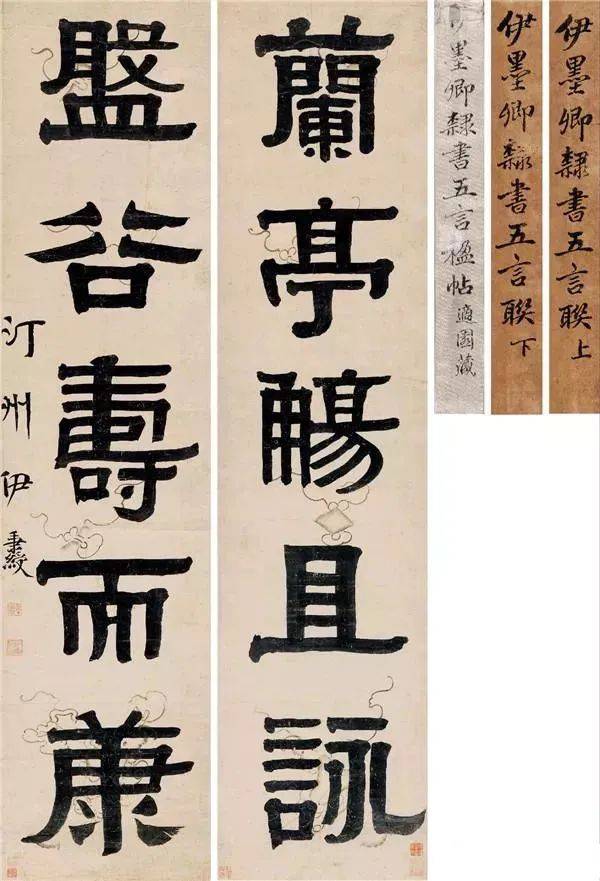 伊墨卿隸書五言聯上
伊墨卿隸書五言聯下
墨卿隸書五言楹帖適園藏
蘭亭觴且詠
盤谷壽而康
汀州伊秉綬